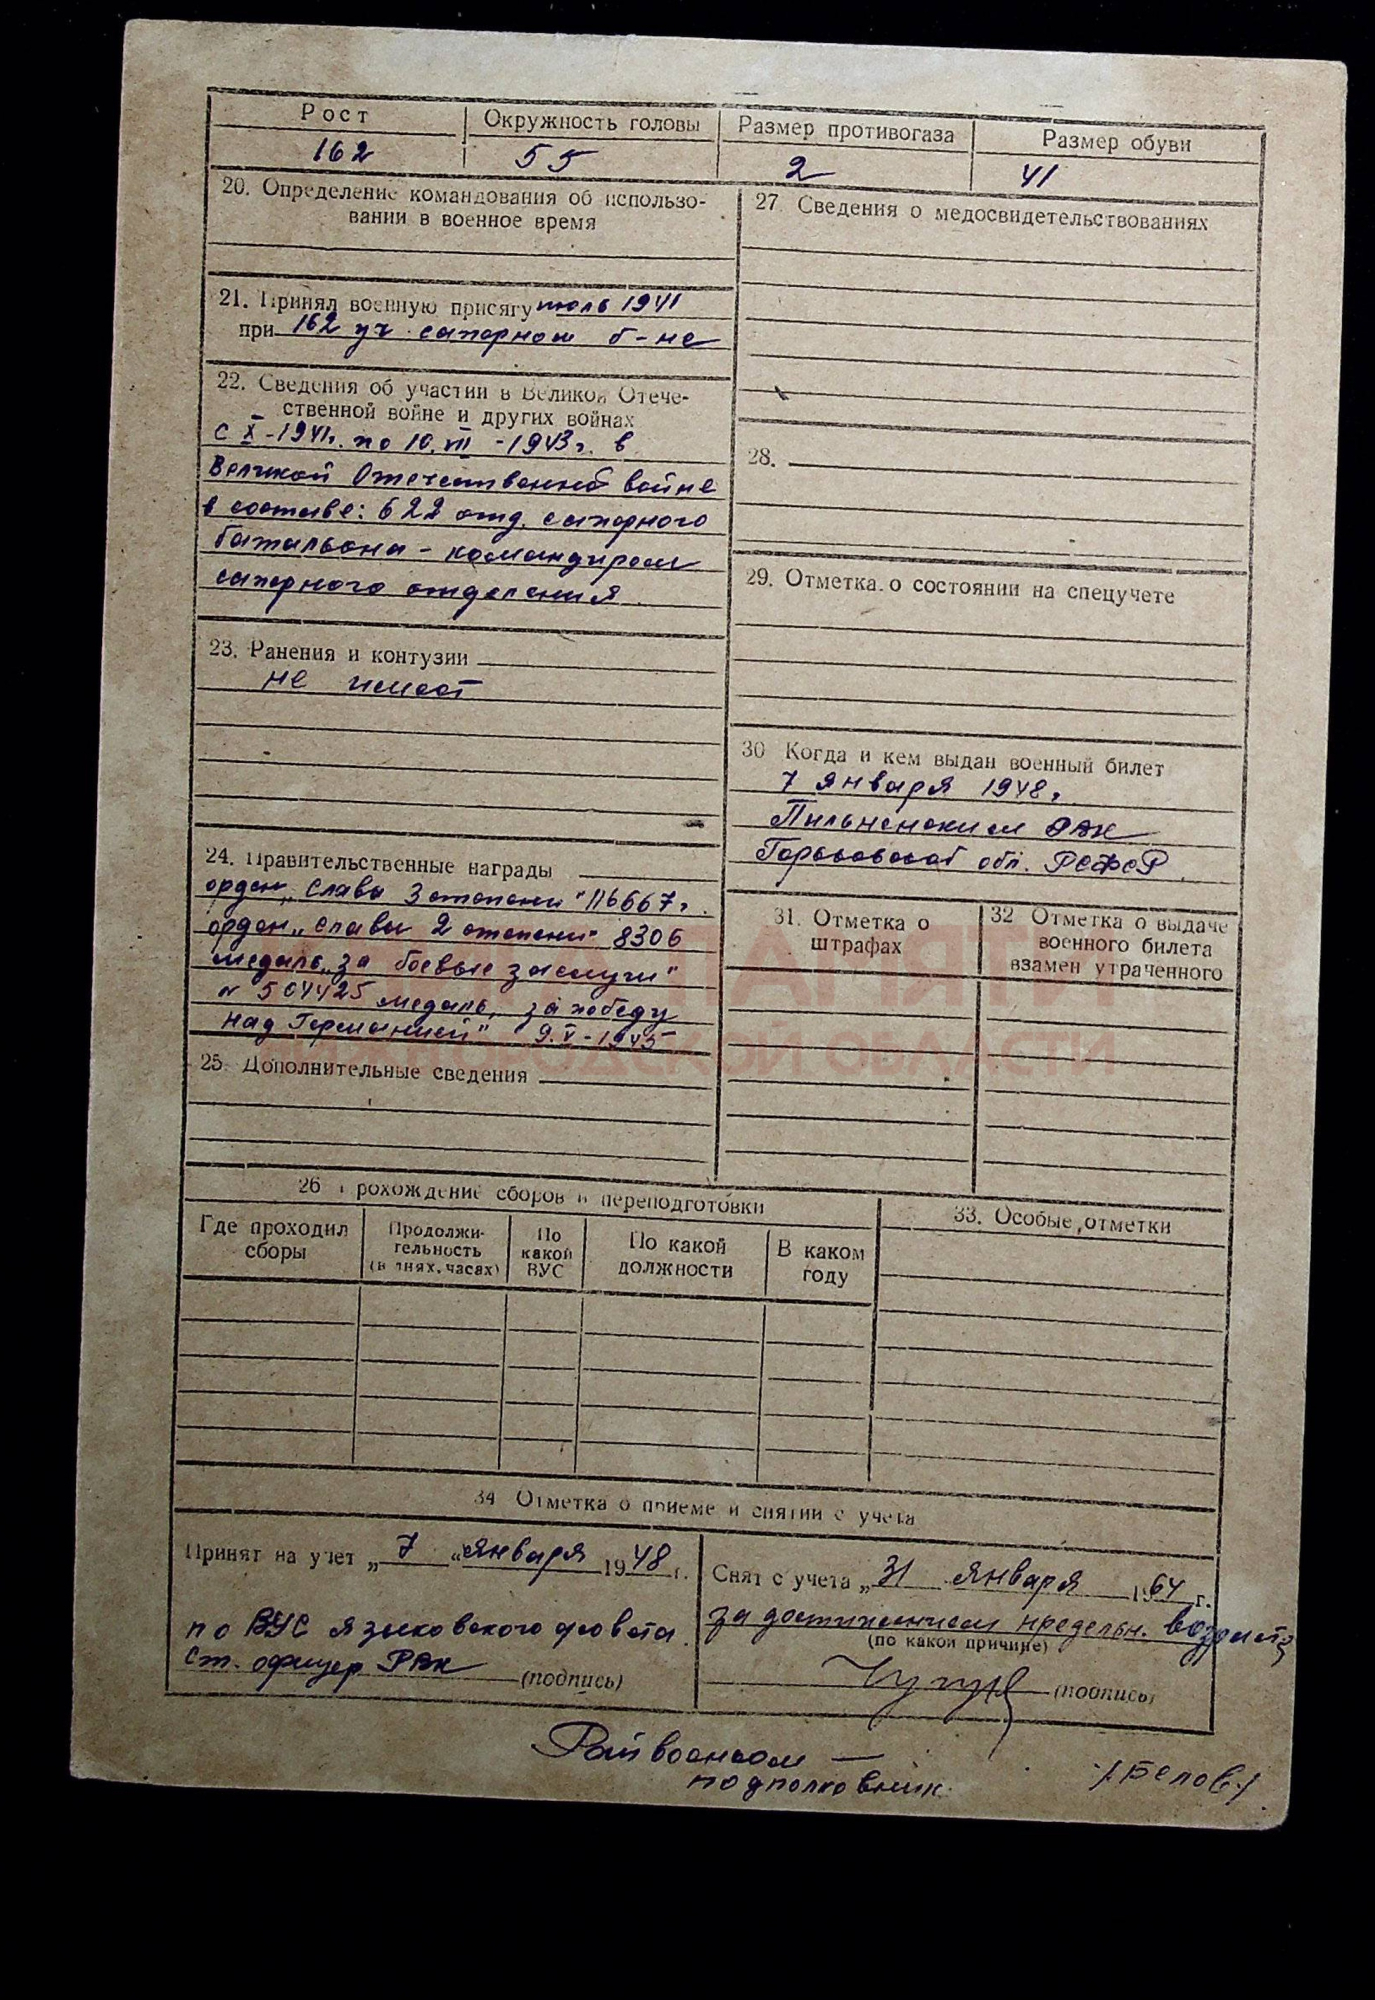 Рост
Окружность головы
Размер противогаза
Размер обуви
162
55
2
41
20. Определение командования об использо-
вании в военное время
21. Принял военную присягу июль 1941
при 162 уч. саперном б-не
22. Сведения об участии в Великой Отече-
ственной войне и других войнах
с X-1941г. по 10.VIII-1943г. в
Великой Отечественной войне
в составе: 622 отд. саперного
батальона - командиром
саперного отделения
23. Ранения и контузии
не имеет
24. Правительственные награды
орден „Слава 3 степени" 116667г.
орден „Славы 2 степени" 8306
медаль „за боевые заслуги"
N 504425 медаль „за победу
над Германией" 9.V-1945
25. Дополнительные сведения
27. Сведения о медосвидетельствованиях
28.
29. Отметка о состоянии на спецучете
30 Когда и кем выдан военный билет
7 января 1948г.
Пильненским РВК
Горьковской обл. РСФСР
31. Отметка о
штрафах
32 Отметка о выдаче
военного билета
взамен утраченного
ПАМЯТИ
ОБЛАСТИ
26 Прохождение сборов и переподготовки
Где проходил
сборы
Продолжи-
тельность
(в днях, часах)
По
какой
ВУС
По какой
должности
В каком
году
33. Особые отметки
34 Отметка о приеме и снятии с учета
Принят на учет „7" января 1948 г.
по ВУС Языковского с/совета
Ст. офицер РВК (подпись)
Снят с учета „31 января 1964 г.
за достижением предельн. возраста
(по какой причине)
(подпись)
Райвоенком —
подполковник
/Белов/